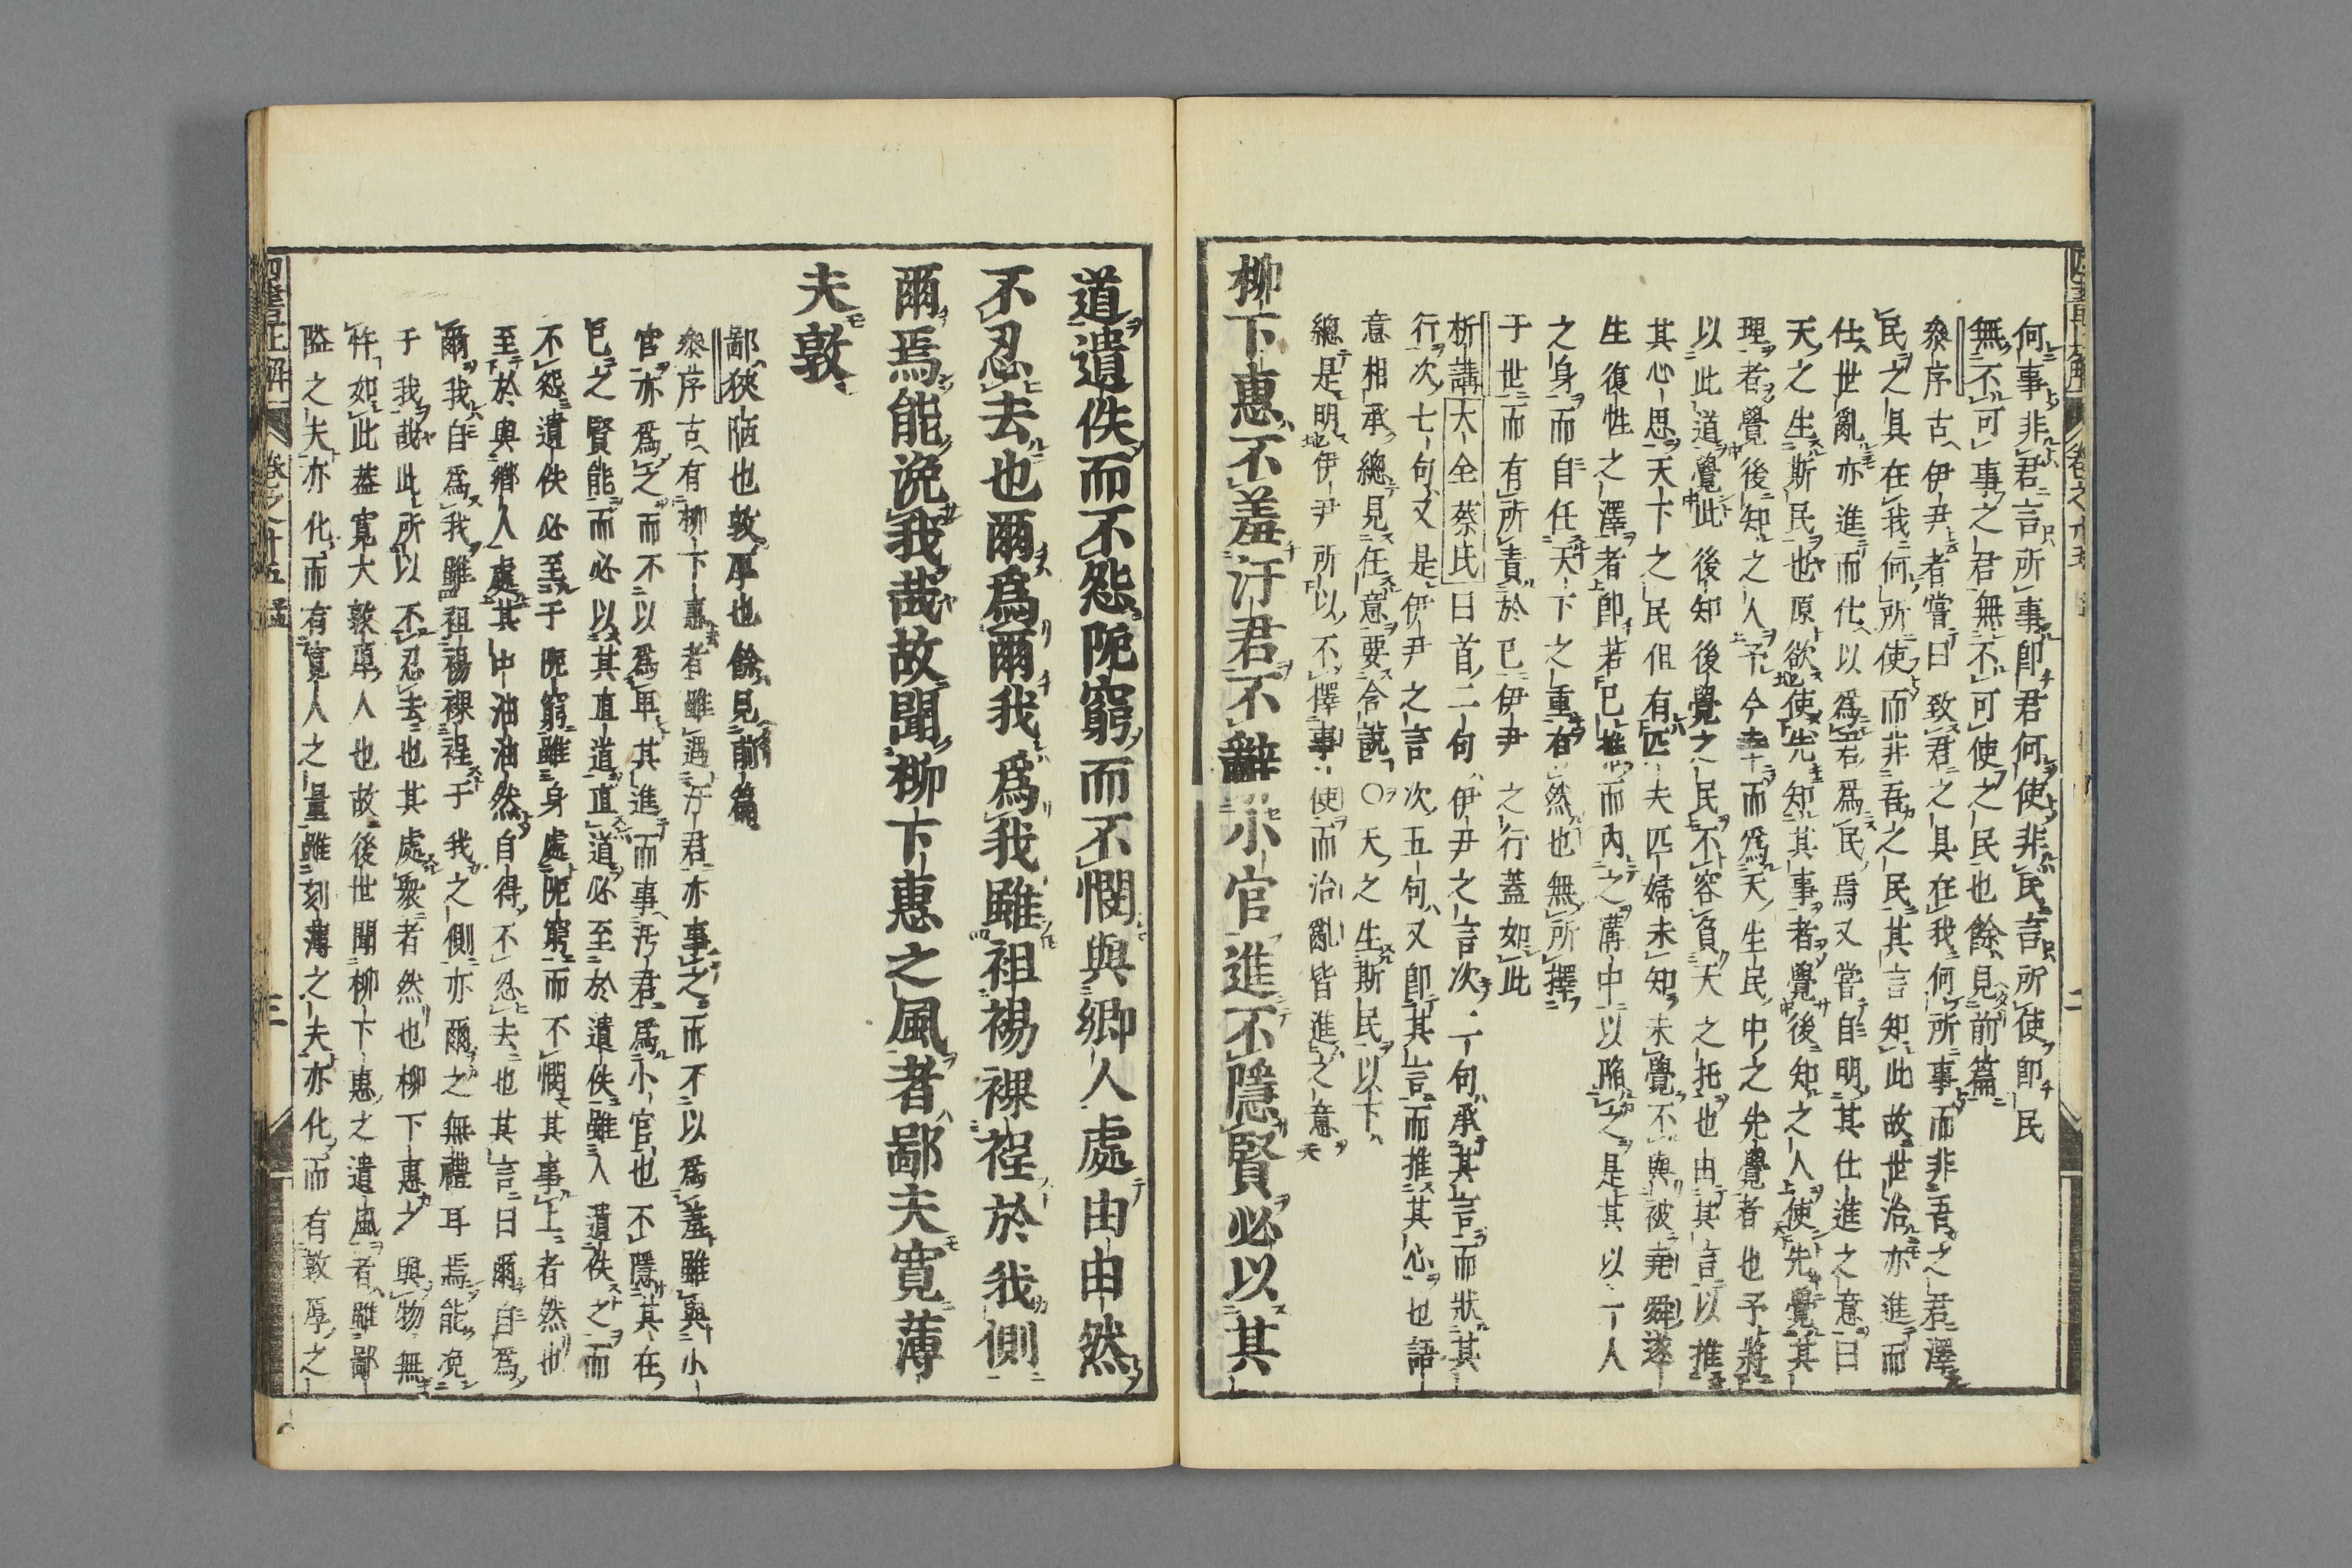 何事非君言所事即君何使非民言所使即民
無不可事之君無不可使之民也餘見前篇
參序古伊尹者嘗曰致君之具在我何所事而非吾之君澤
民之具在我何所使而非吾之民其言知此故世治亦進而
仕世亂亦進而仕以爲君爲民焉又嘗自明其仕進之意曰
天之生斯民也原欲使先知其事者覺後知之人使先覺其
理者覺後知之人予今幸而爲天生民中之先覺者也予將
以此道覺此後知後覺之民不容負天之托也由其言以推
其心思天下之民但有匹夫匹婦未知未覺不與被堯舜遂
生復性之澤者即若已推而內之溝中以陷之是其以一人
之身而自任天下之重有然也無所擇
于世而有所責於已伊尹之行蓋如此
析講大全蔡氏曰首二句伊尹之言次二句承其言而狀其
行次七句又是伊尹之言次五句又即其言而推其心也語
意相承總見任意要合說〇天之生斯民以下
總是明伊尹所以不擇事使而治亂皆進之意
柳下惠不羞汙君不辭小官進不隱賢必以其
道遺佚而不怨阨窮而不憫與鄉人處由由然
不忍去也爾爲爾我爲我雖袒裼裸裎於我側
爾焉能浼我哉故聞柳下惠之風者鄙夫寬薄
夫敦
鄙狹陋也敦厚也餘見前篇
參序古有柳下惠者雖遇汙君亦事之而不以爲羞雖與小
官亦爲之而不以爲卑其進而事汙君爲小官也不隱其在
已之賢能而必以其直道直道必至於遺佚雖人遺佚之而
不怨遺佚必至于阨窮雖身處阨窮而不憫其事上者然也
至於與鄉人處其中油油然自得不忍去也其言曰爾自爲
爾我自爲我雖袒裼裸裎于我之側亦爾之無禮耳焉能浼
于我哉此所以不忍去也其處衆者然也柳下惠之與物無
忤如此蓋寬大敦厚人也故後世聞柳下惠之遺風者雖鄙
隘之夫亦化而有寬人之量雖刻薄之夫亦化而有敦厚之
四書正解
卷之十五
孟
三